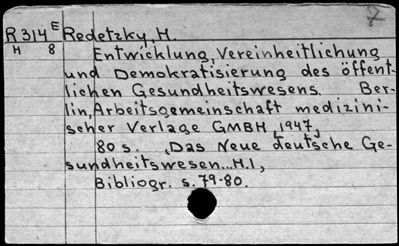 R314E Redetzky, H.
H 8 Entwicklung, Vereinheitlichung
und Demokratisierung des öffent-
lichen Gesundheitswesens. Ber-
lin, Arbeitsgemeinschaft medizini-
scher Verlage GMBH, 1947,
80 s. Das Neue deutsche Ge-
sundheitswesen...H.1,
Bibliogr. s. 79-80.